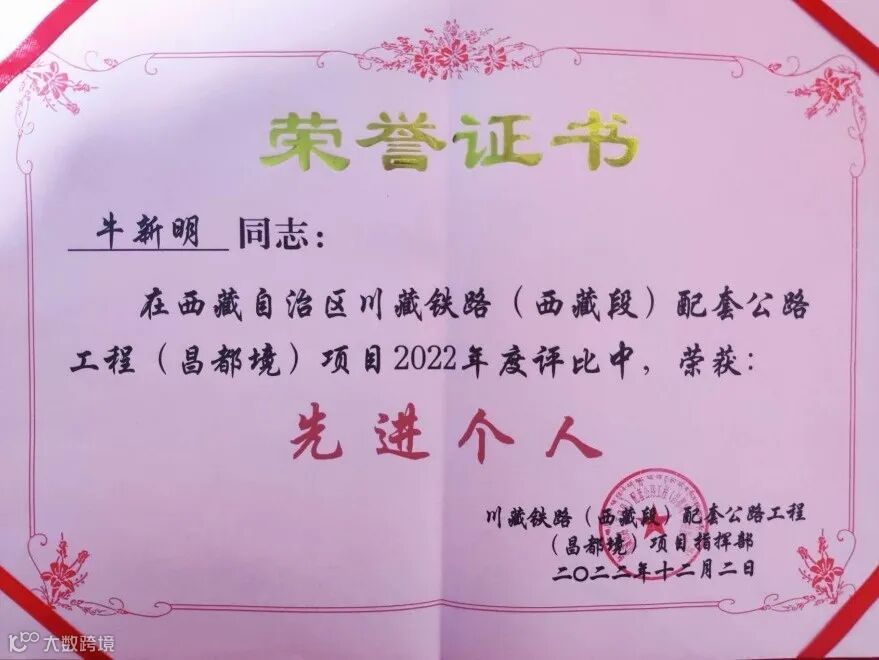 荣誉证书
牛新明 同志：
在西藏自治区川藏铁路（西藏段）配套公路
工程（昌都境）项目2022年度评比中，荣获：
先进个人
川藏铁路（西藏段）配套公路工程
（昌都境）项目指挥部
二〇二二年十二月二日
大数跨境